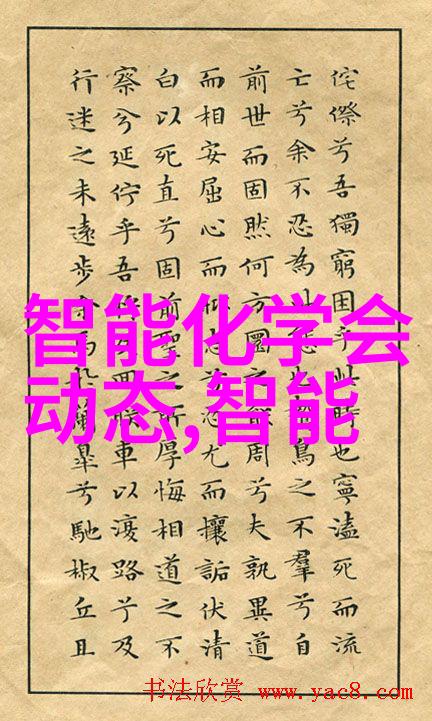 侘傺兮吾獨窮困乎此時也寧溘死而流
亡兮余不忍為此態也鷙鳥之不羣兮自
前世而固然何方圜之能周兮夫孰異道
而相安屈心而抑志兮忍尤而攘詬伏清
白以死直兮固前聖之所厚悔相道之不
察兮延佇乎吾將反回朕車以復路兮及
行迷之未遠步余馬於蘭皋兮馳椒丘且
智能化学会
动态,智能
书法欣赏 www.yac8.com